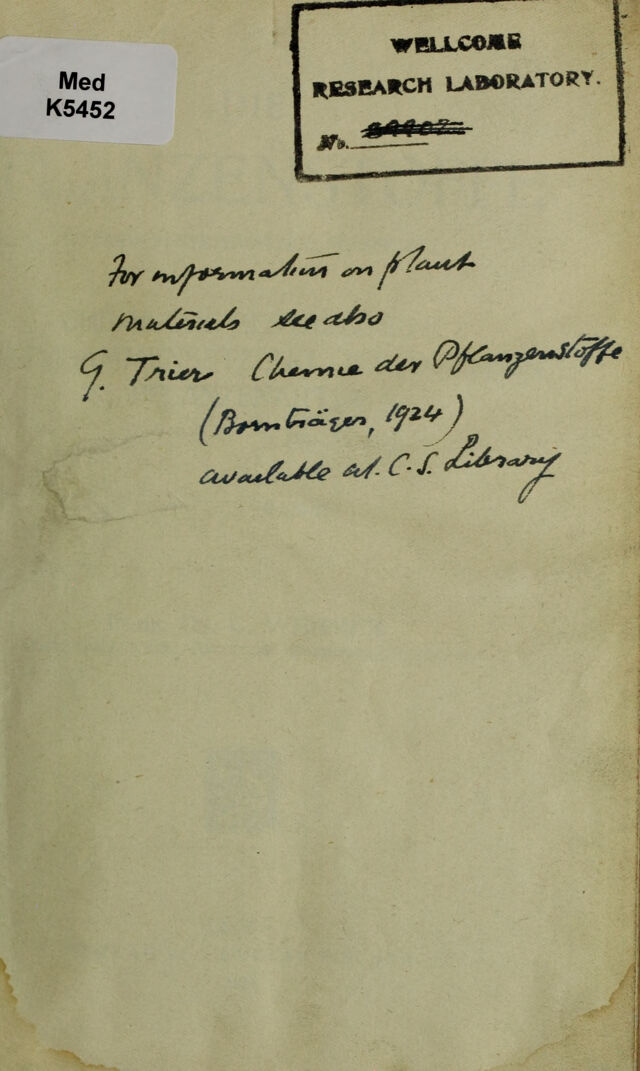 Med
K5452
WELLCOME
RESEARCH LABORATORY.
No.
For information on plant
materials see also
G. Trier Chemie der Pflanzenstoffe
(Bornträger, 1924)
available at C.S. Library